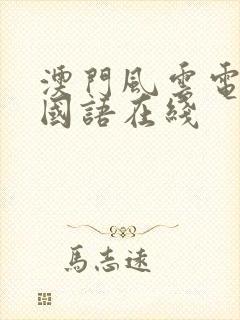 澳門風雲電
國語在綫
馬志遠